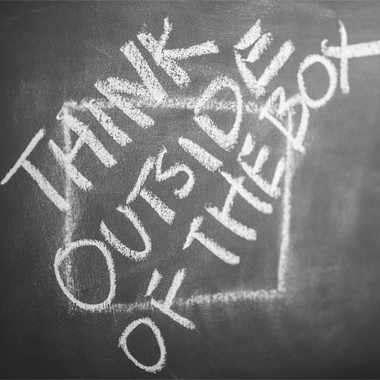 THINK
OUTSIDE
OF THE BOX